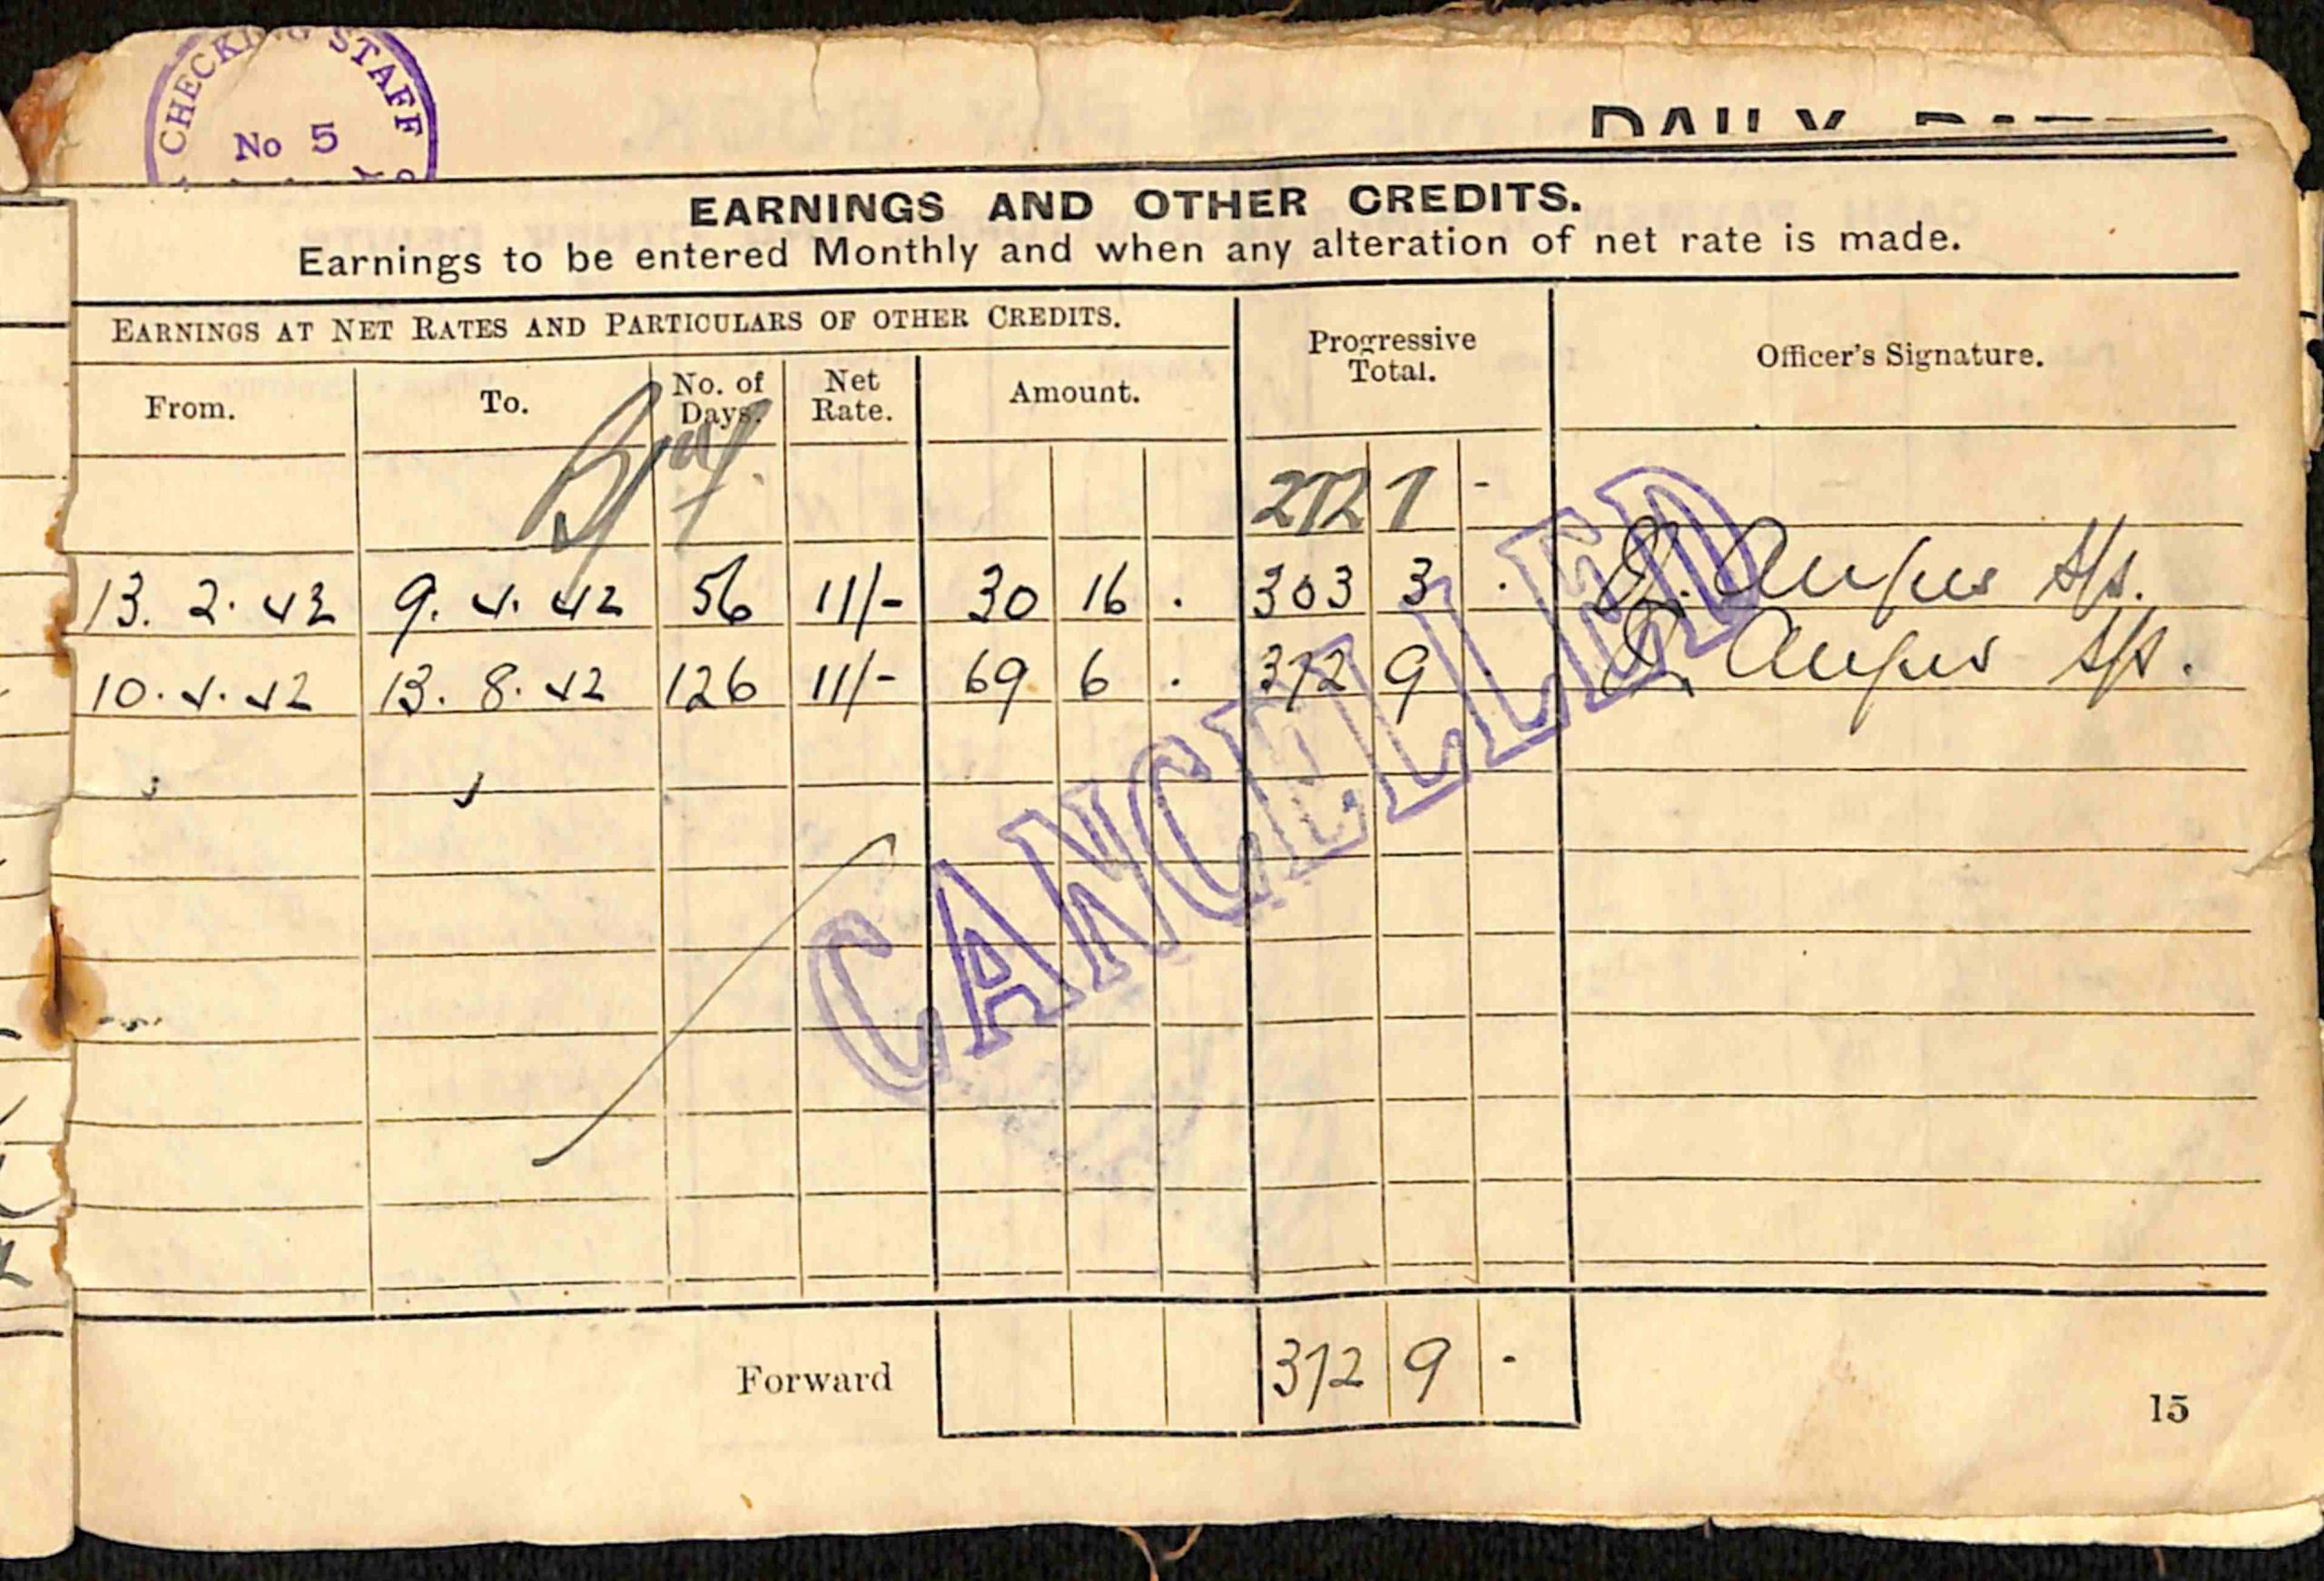 CHECKING STAFF
No 5
EARNINGS AND OTHER CREDITS.
Earnings to be entered Monthly and when any alteration of net rate is made.
EARNINGS AT NET RATES AND PARTICULARS OF OTHER CREDITS. Progressive Total. Officer's Signature.
From. To. No. of Days. Net Rate. Amount.
272 7 -
13. 2. 42 9. 4. 42 56 11/- 30 16 . 303 3 . E. Angus
10. 4. 42 13. 8. 42 126 11/- 69 6 . 372 9 E. Angus
CANCELLED
Forward 372 9 -
15